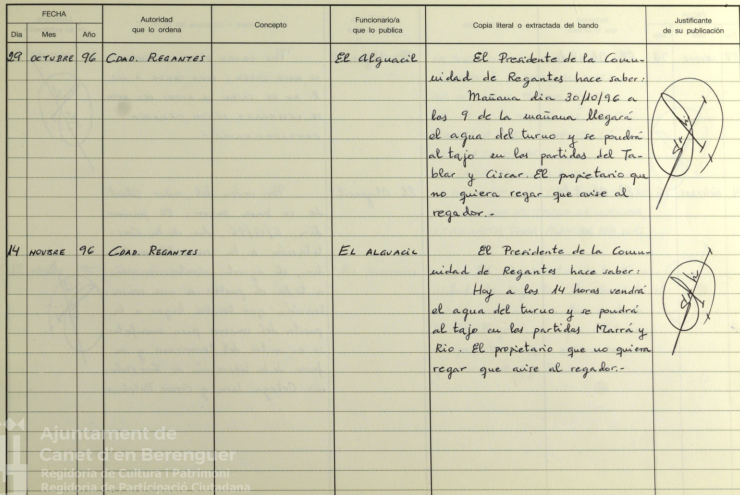 FECHA
Día Mes Año
Autoridad
que lo ordena
Concepto
Funcionario/a
que lo publica
Copia literal o extractada del bando
Justificante
de su publicación
29 OCTUBRE 96 CDAD. REGANTES El Alguacil El Presidente de la Comu-
nidad de Regantes hace saber:
Mañana dia 30/10/96 a
las 9 de la mañana llegará
el agua del turno y se pondrá
al tajo en las partidas del Ta-
blar y Ciscar. El propietario que
no quiera regar que avise al
regador.-
14 NOVBRE 96 CDAD. REGANTES EL ALGUACIL El Presidente de la Comu-
nidad de Regantes hace saber:
Hoy a las 14 horas vendrá
el agua del turno y se pondrá
al tajo en las partidas Marrá y
Rio. El propietario que no quiera
regar que avise al regador.-
Ajuntament de
Canet d'en Berenguer
Regidoria de Cultura i Patrimoni
Regidoria de Participació Ciutadana